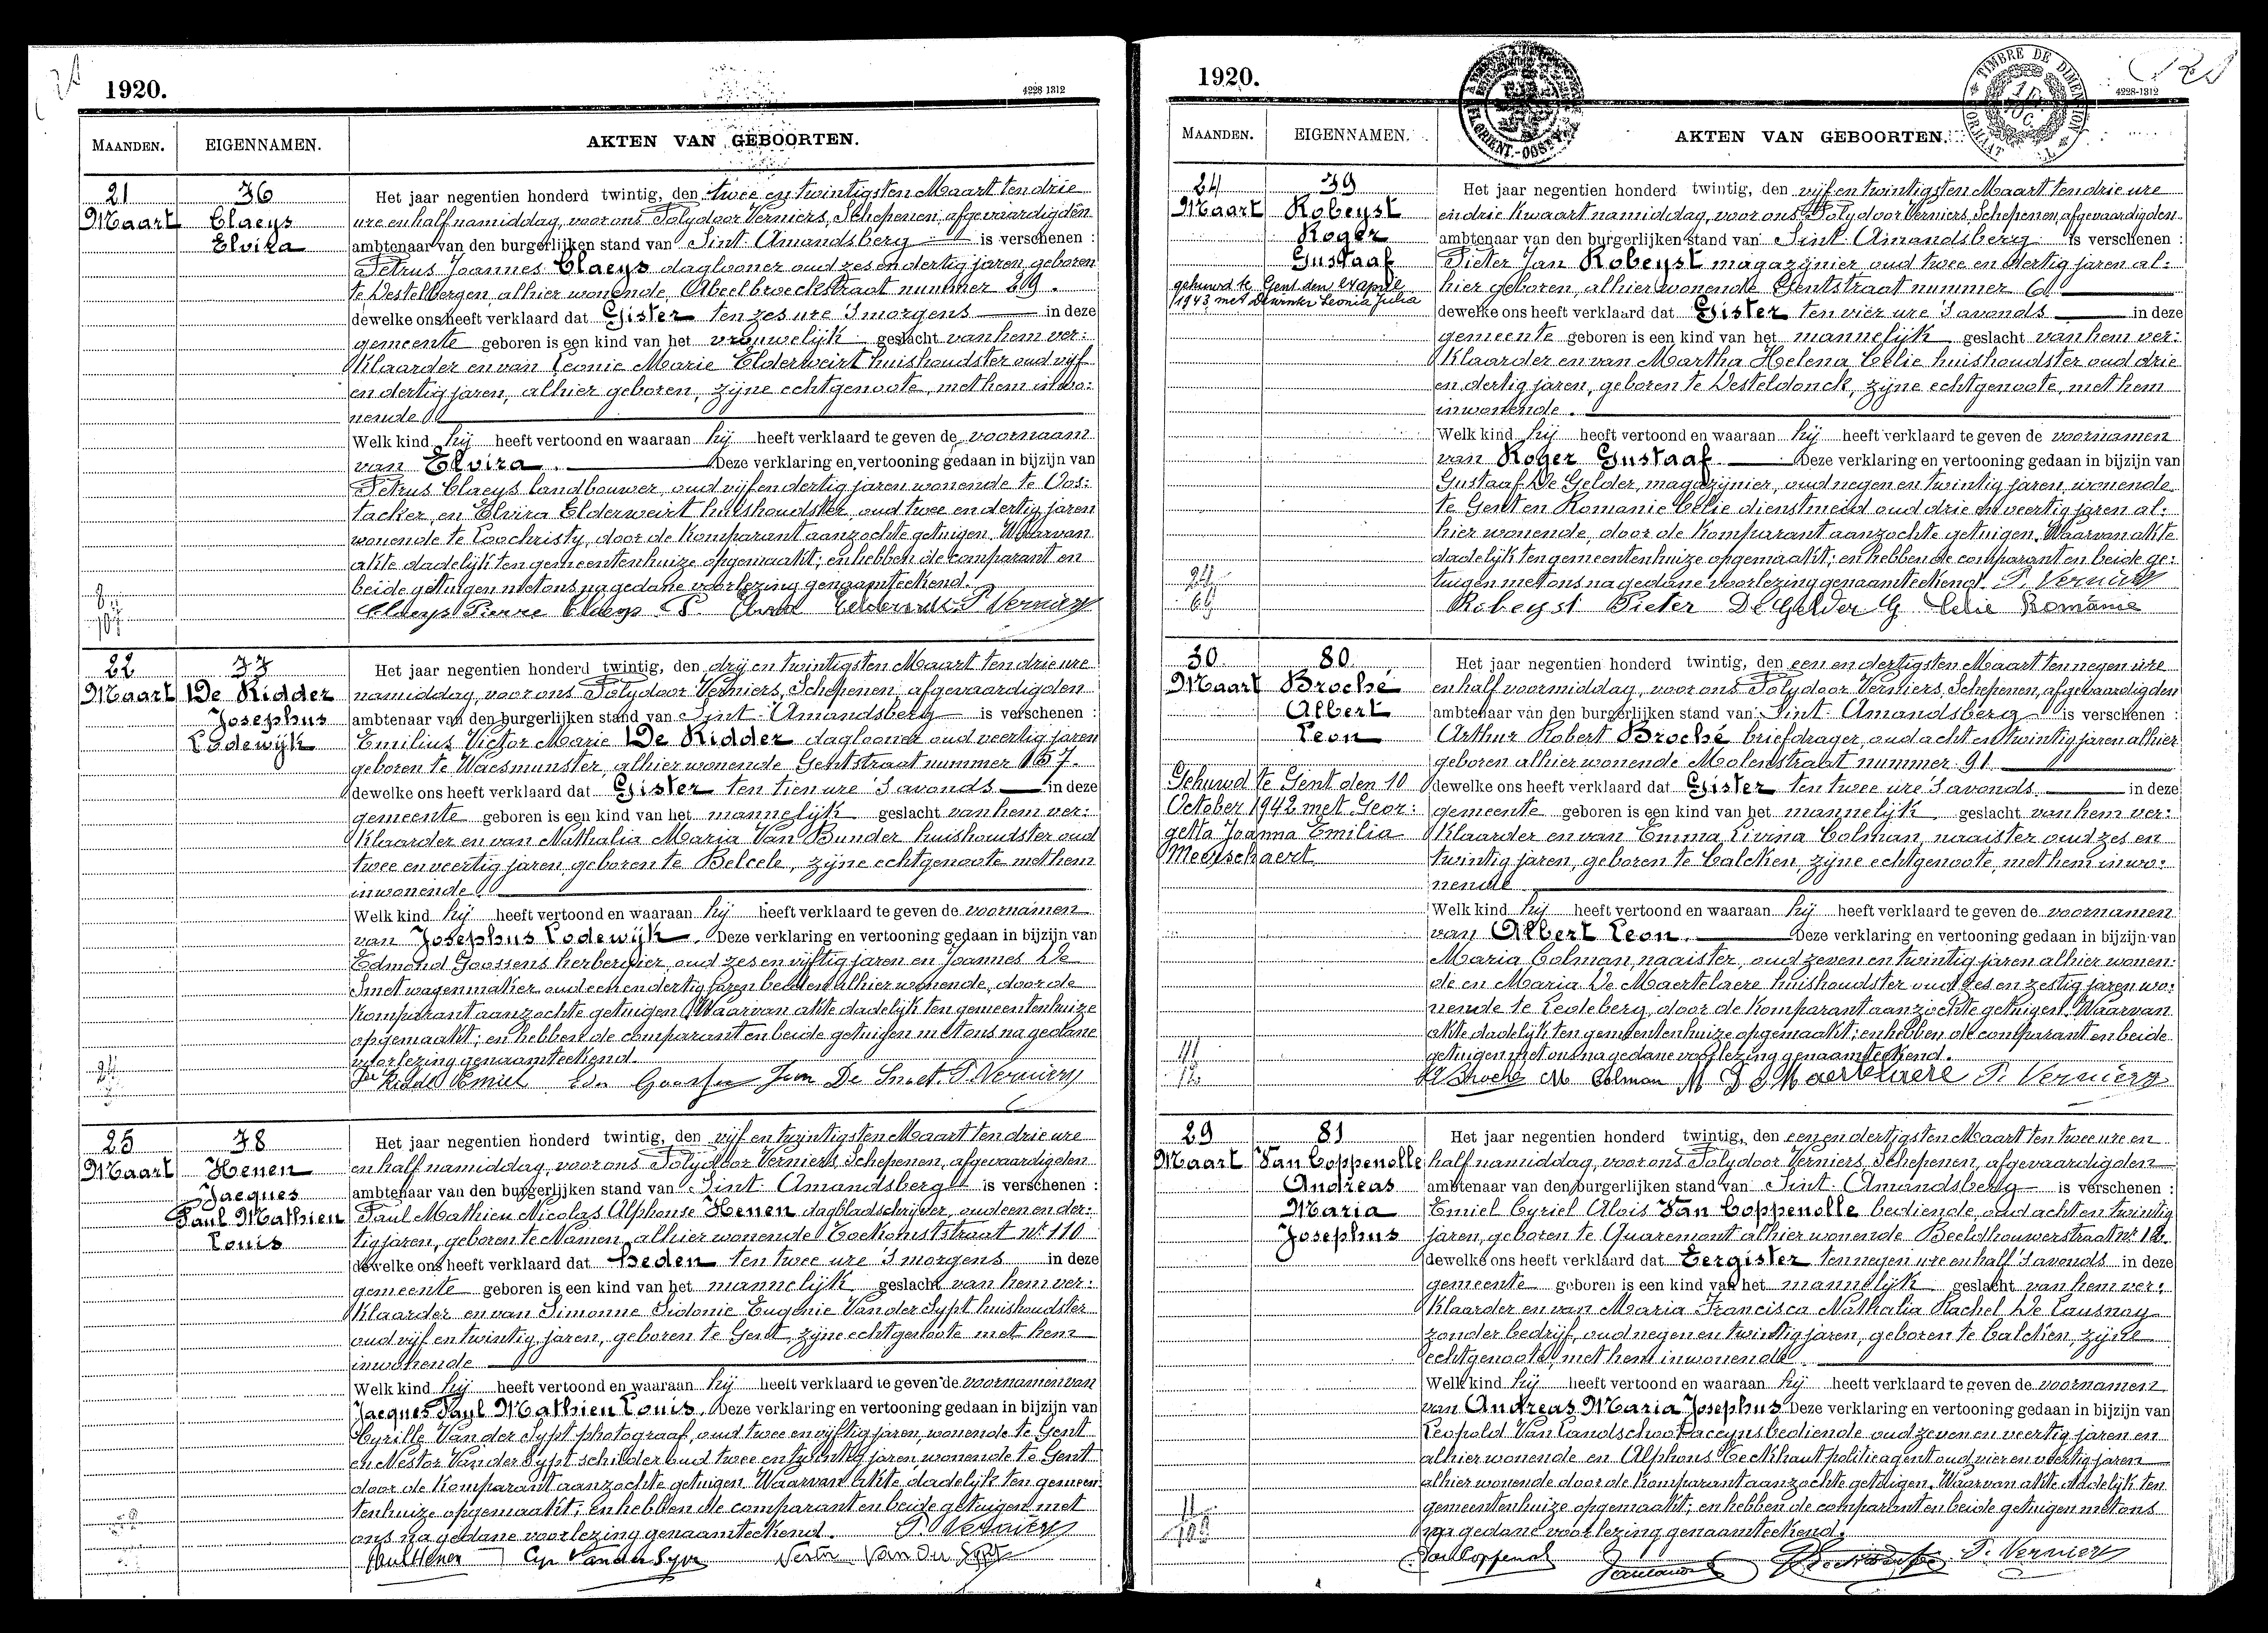 1920.
4228 1312
MAANDEN.
EIGENNAMEN.
AKTEN VAN GEBOORTEN.
21
Maart
76
Claeys
Elvira
Het jaar negentien honderd twintig, den twee en twintigsten Maart ten drie
ure en half namiddag, voor ons Polydoor Verniers, Schepenen, afgevaardigden
ambtenaar van den burgerlijken stand van Sint-Amandsberg is verschenen :
Petrus Joannes Claeys daglooner oud zes en dertig jaren geboren
te Destelbergen alhier wonende Abeelbroeckstraat nummer 29.
dewelke ons heeft verklaard dat Gister ten zes ure 's morgens in deze
gemeente geboren is een kind van het vrouwelijk geslacht van hem ver:
klaarder en van Leonie Marie Elderweirt huishoudster oud vijf
en dertig jaren, alhier geboren, zijne echtgenoote, met hem inwo:
nende
Welk kind hij heeft vertoond en waaraan hij heeft verklaard te geven de voornaam
van Elvira. Deze verklaring en vertooning gedaan in bijzijn van
Petrus Claeys landbouwer, oud vijf en dertig jaren wonende te Oos:
tacker, en Elvira Elderweirt huishoudster, oud twee en dertig jaren
wonende te Loochristy, door de komparant aanzochte getuigen. Waarvan
akte dadelijk ten gemeentenhuize opgemaakt; en hebben de comparant en
beide getuigen met ons na gedane voorlezing genaamteekend.
Claeys Pierre Claeys P. Elvira Elderweirt P. Verniers
22
Maart
77
De Ridder
Josephus
Lodewijk
Het jaar negentien honderd twintig, den drij en twintigsten Maart ten drie ure
namiddag, voor ons Polydoor Verniers, Schepenen, afgevaardigden
ambtenaar van den burgerlijken stand van Sint-Amandsberg is verschenen :
Emilius Victor Marie De Ridder daglooner oud veertig jaren
geboren te Waesmunster, alhier wonende Gentstraat nummer 157.
dewelke ons heeft verklaard dat Gister ten tien ure 's avonds in deze
gemeente geboren is een kind van het mannelijk geslacht van hem ver:
klaarder en van Nathalia Maria Van Bunder huishoudster oud
twee en veertig jaren, geboren te Belcele, zijne echtgenoote met hem
inwonende.
Welk kind hij heeft vertoond en waaraan hij heeft verklaard te geven de voornamen
van Josephus Lodewijk. Deze verklaring en vertooning gedaan in bijzijn van
Edmond Goossens herbergier, oud zes en vijftig jaren en Joannes De
Smet wagenmaker oud een en dertig jaren beiden alhier wonende, door de
komparant aanzochte getuigen. Waarvan akte dadelijk ten gemeentenhuize
opgemaakt; en hebben de comparant en beide getuigen met ons na gedane
voorlezing genaamteekend.
De Ridder Emiel Edm Goossens Jean De Smet P. Verniers
25
Maart
78
Henen
Jacques
Paul Mathieu
Louis
Het jaar negentien honderd twintig, den vijf en twintigsten Maart ten drie ure
en half namiddag, voor ons Polydoor Verniers, Schepenen, afgevaardigden
ambtenaar van den burgerlijken stand van Sint-Amandsberg is verschenen :
Paul Mathieu Nicolas Alphonse Henen dagbladschrijver, oud een en der:
tig jaren, geboren te Namen, alhier wonende Toekomststraat nr 110
dewelke ons heeft verklaard dat Heden ten twee ure 's morgens in deze
gemeente geboren is een kind van het mannelijk geslacht van hem ver:
klaarder en van Simonne Sidonie Eugenie Van der Sypt huishoudster
oud vijf en twintig jaren, geboren te Gent, zijne echtgenoote met hem
inwonende
Welk kind hij heeft vertoond en waaraan hij heeft verklaard te geven de voornamen van
Jacques Paul Mathieu Louis. Deze verklaring en vertooning gedaan in bijzijn van
Cyrille Van der Sypt photograaf, oud twee en vijftig jaren, wonende te Gent
en Nestor Van der Sypt schilder oud twee en twintig jaren wonende te Gent
door de komparant aanzochte getuigen. Waarvan akte dadelijk ten gemeen:
tenhuize opgemaakt; en hebben de comparant en beide getuigen met
ons na gedane voorlezing genaamteekend. P. Verniers
Paul Henen Cyr Van der Sypt Nestor Van Der Sypt
1920.
4228-1312
TIMBRE DE DIMENSION
MAANDEN.
EIGENNAMEN.
AKTEN VAN GEBOORTEN.
24
Maart
79
Robeyst
Roger
Gustaaf
gehuwd te Gent den 24 april
1943 met Dewinter Leonia Julia
Het jaar negentien honderd twintig, den vijf en twintigsten Maart ten drie ure
en drie kwaart namiddag, voor ons Polydoor Verniers, Schepenen, afgevaardigden
ambtenaar van den burgerlijken stand van Sint-Amandsberg is verschenen :
Pieter Jan Robeyst magazijnier oud twee en dertig jaren al:
hier geboren, alhier wonende Gentstraat nummer 6
dewelke ons heeft verklaard dat Gister ten vier ure 's avonds in deze
gemeente geboren is een kind van het mannelijk geslacht van hem ver:
klaarder en van Martha Helena Celie huishoudster oud drie
en dertig jaren, geboren te Desteldonck, zijne echtgenoote, met hem
inwonende.
Welk kind hij heeft vertoond en waaraan hij heeft verklaard te geven de voornamen
van Roger Gustaaf Deze verklaring en vertooning gedaan in bijzijn van
Gustaaf De Gelder, magazijnier, oud negen en twintig jaren, wonende
te Gent en Romanie Celie dienstmeid oud drie en veertig jaren al:
hier wonende, door de komparant aanzochte getuigen. Waarvan akte
dadelijk ten gemeentenhuize opgemaakt; en hebben de comparant en beide ge:
tuigen met ons na gedane voorlezing genaamteekend. P. Verniers
Robeyst Pieter De Gelder G Celie Romanie
30
Maart
80
Broché
Albert
Leon
Gehuwd te Gent den 10
October 1942 met Geor:
getta Joanna Emilia
Meerschaert
Het jaar negentien honderd twintig, den een en dertigsten Maart ten negen ure
en half voormiddag, voor ons Polydoor Verniers, Schepenen, afgevaardigden
ambtenaar van den burgerlijken stand van Sint-Amandsberg is verschenen :
Arthur Robert Broché briefdrager, oud acht en twintig jaren alhier
geboren alhier wonende Molenstraat nummer 91
dewelke ons heeft verklaard dat Gister ten twee ure 's avonds in deze
gemeente geboren is een kind van het mannelijk geslacht van hem ver:
klaarder en van Emma Livina Colman, naaister oud zes en
twintig jaren, geboren te Calcken, zijne echtgenoote, met hem inwo:
nende
Welk kind hij heeft vertoond en waaraan hij heeft verklaard te geven de voornamen
van Albert Leon. Deze verklaring en vertooning gedaan in bijzijn van
Maria Colman, naaister, oud zeven en twintig jaren alhier wonen:
de en Maria De Maertelaere huishoudster oud zes en zestig jaren wo:
nende te Ledeberg, door de komparant aanzochte getuigen. Waarvan
akte dadelijk ten gemeentenhuize opgemaakt; en hebben de comparant en beide
getuigen met ons na gedane voorlezing genaamteekend.
Broché M Colman M De Maertelaere P. Verniers
29
Maart
81
Van Coppenolle
Andreas
Maria
Josephus
Het jaar negentien honderd twintig, den een en dertigsten Maart ten twee ure en
half namiddag, voor ons Polydoor Verniers, Schepenen, afgevaardigden
ambtenaar van den burgerlijken stand van Sint-Amandsberg is verschenen :
Emiel Cyriel Alois Van Coppenolle bediende, oud acht en twintig
jaren, geboren te Quaremont alhier wonende Beeldhouwerstraat nr 12.
dewelke ons heeft verklaard dat Eergister ten negen ure en half 's avonds in deze
gemeente geboren is een kind van het mannelijk geslacht van hem ver:
klaarder en van Maria Francisca Nathalia Rachel De Causnay
zonder bedrijf, oud negen en twintig jaren, geboren te Calcken, zijne
echtgenoote, met hem inwonende
Welk kind hij heeft vertoond en waaraan hij heeft verklaard te geven de voornamen
van Andreas Maria Josephus Deze verklaring en vertooning gedaan in bijzijn van
Leopold Van Landschoot accijnsbediende oud zeven en veertig jaren en
alhier wonende en Alphons Eeckhaut politieagent oud vier en veertig jaren
alhier wonende door de komparant aanzochte getuigen. Waarvan akte dadelijk ten
gemeentenhuize opgemaakt; en hebben de comparant en beide getuigen met ons
na gedane voorlezing genaamteekend.
Van Coppenolle P. Verniers